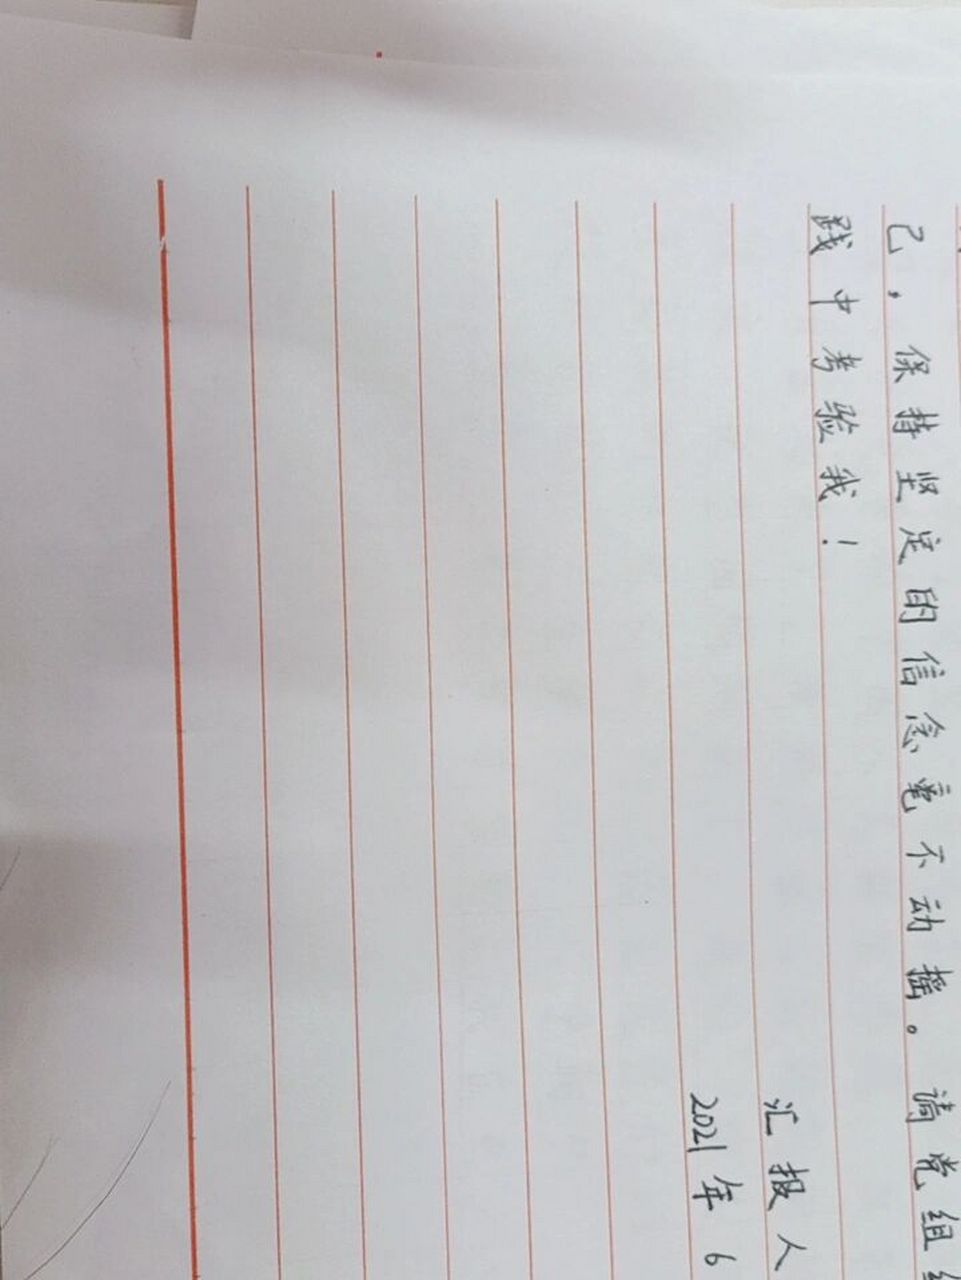 己，保持坚定的信念毫不动摇。请党组
践中考验我！
汇报人
2021年6